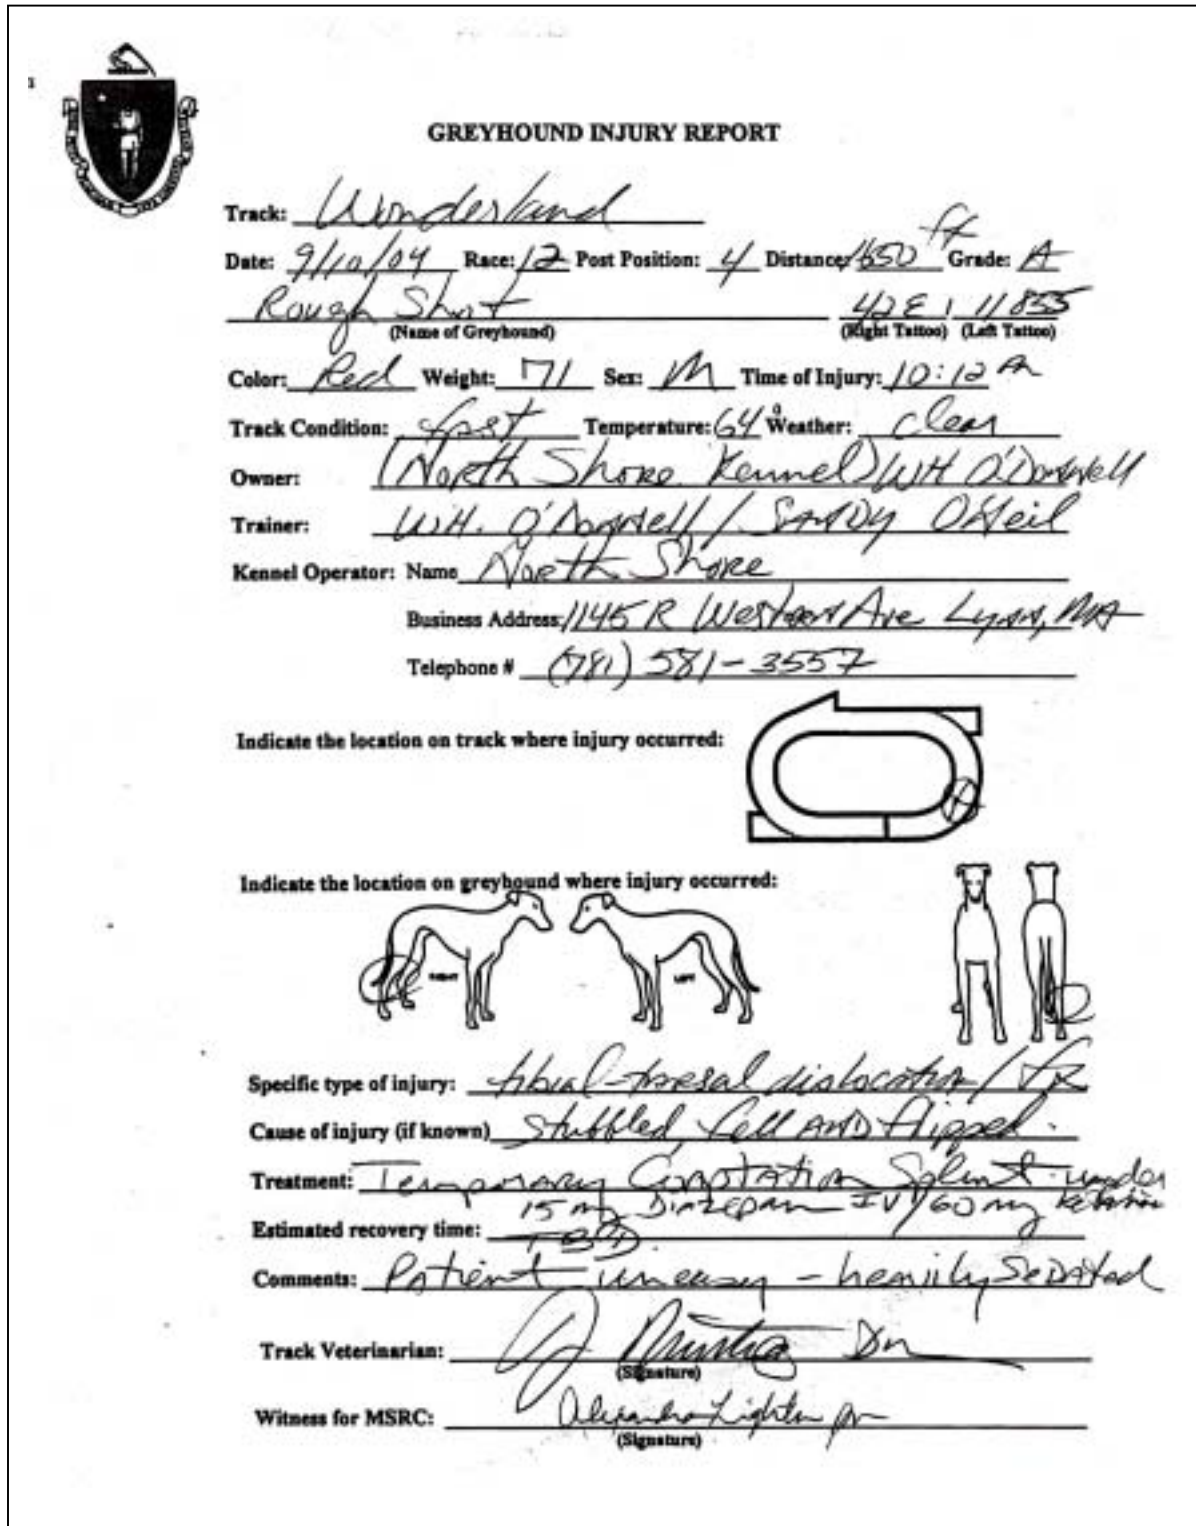 GREYHOUND INJURY REPORT
Track: Wonderland
Date: 9/10/04 Race: 12 Post Position: 4 Distance: 1650 ft Grade: A
Rough Shot 42E 11855
(Name of Greyhound) (Right Tattoo) (Left Tattoo)
Color: Red Weight: 71 Sex: M Time of Injury: 10:12 PM
Track Condition: fast Temperature: 64° Weather: clear
Owner: (North Shore Kennel) WH O'Donnell
Trainer: W.H. O'Donnell / Sandy O'Neil
Kennel Operator: Name North Shore
Business Address: 1145 R Western Ave Lynn, MA
Telephone # (781) 581-3557
Indicate the location on track where injury occurred:
Indicate the location on greyhound where injury occurred:
RIGHT LEFT
Specific type of injury: tibial-tarsal dislocation /
Cause of injury (if known) fell AND flipped.
Treatment: Temporary Splint under
15 mg Diazepam IV / 60 mg Ketamine
Estimated recovery time: TBD.
Comments: Patient uneasy - heavily sedated
Track Veterinarian:
(Signature)
Witness for MSRC:
(Signature)